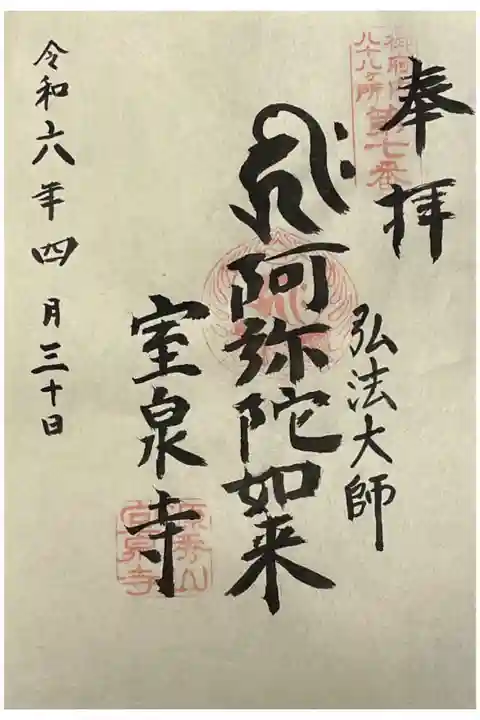 奉拝
御府内
八十八ヶ所
第七番
弘法大師
阿弥陀如来
室泉寺
源秀山
室泉寺
令和六年四月三十日